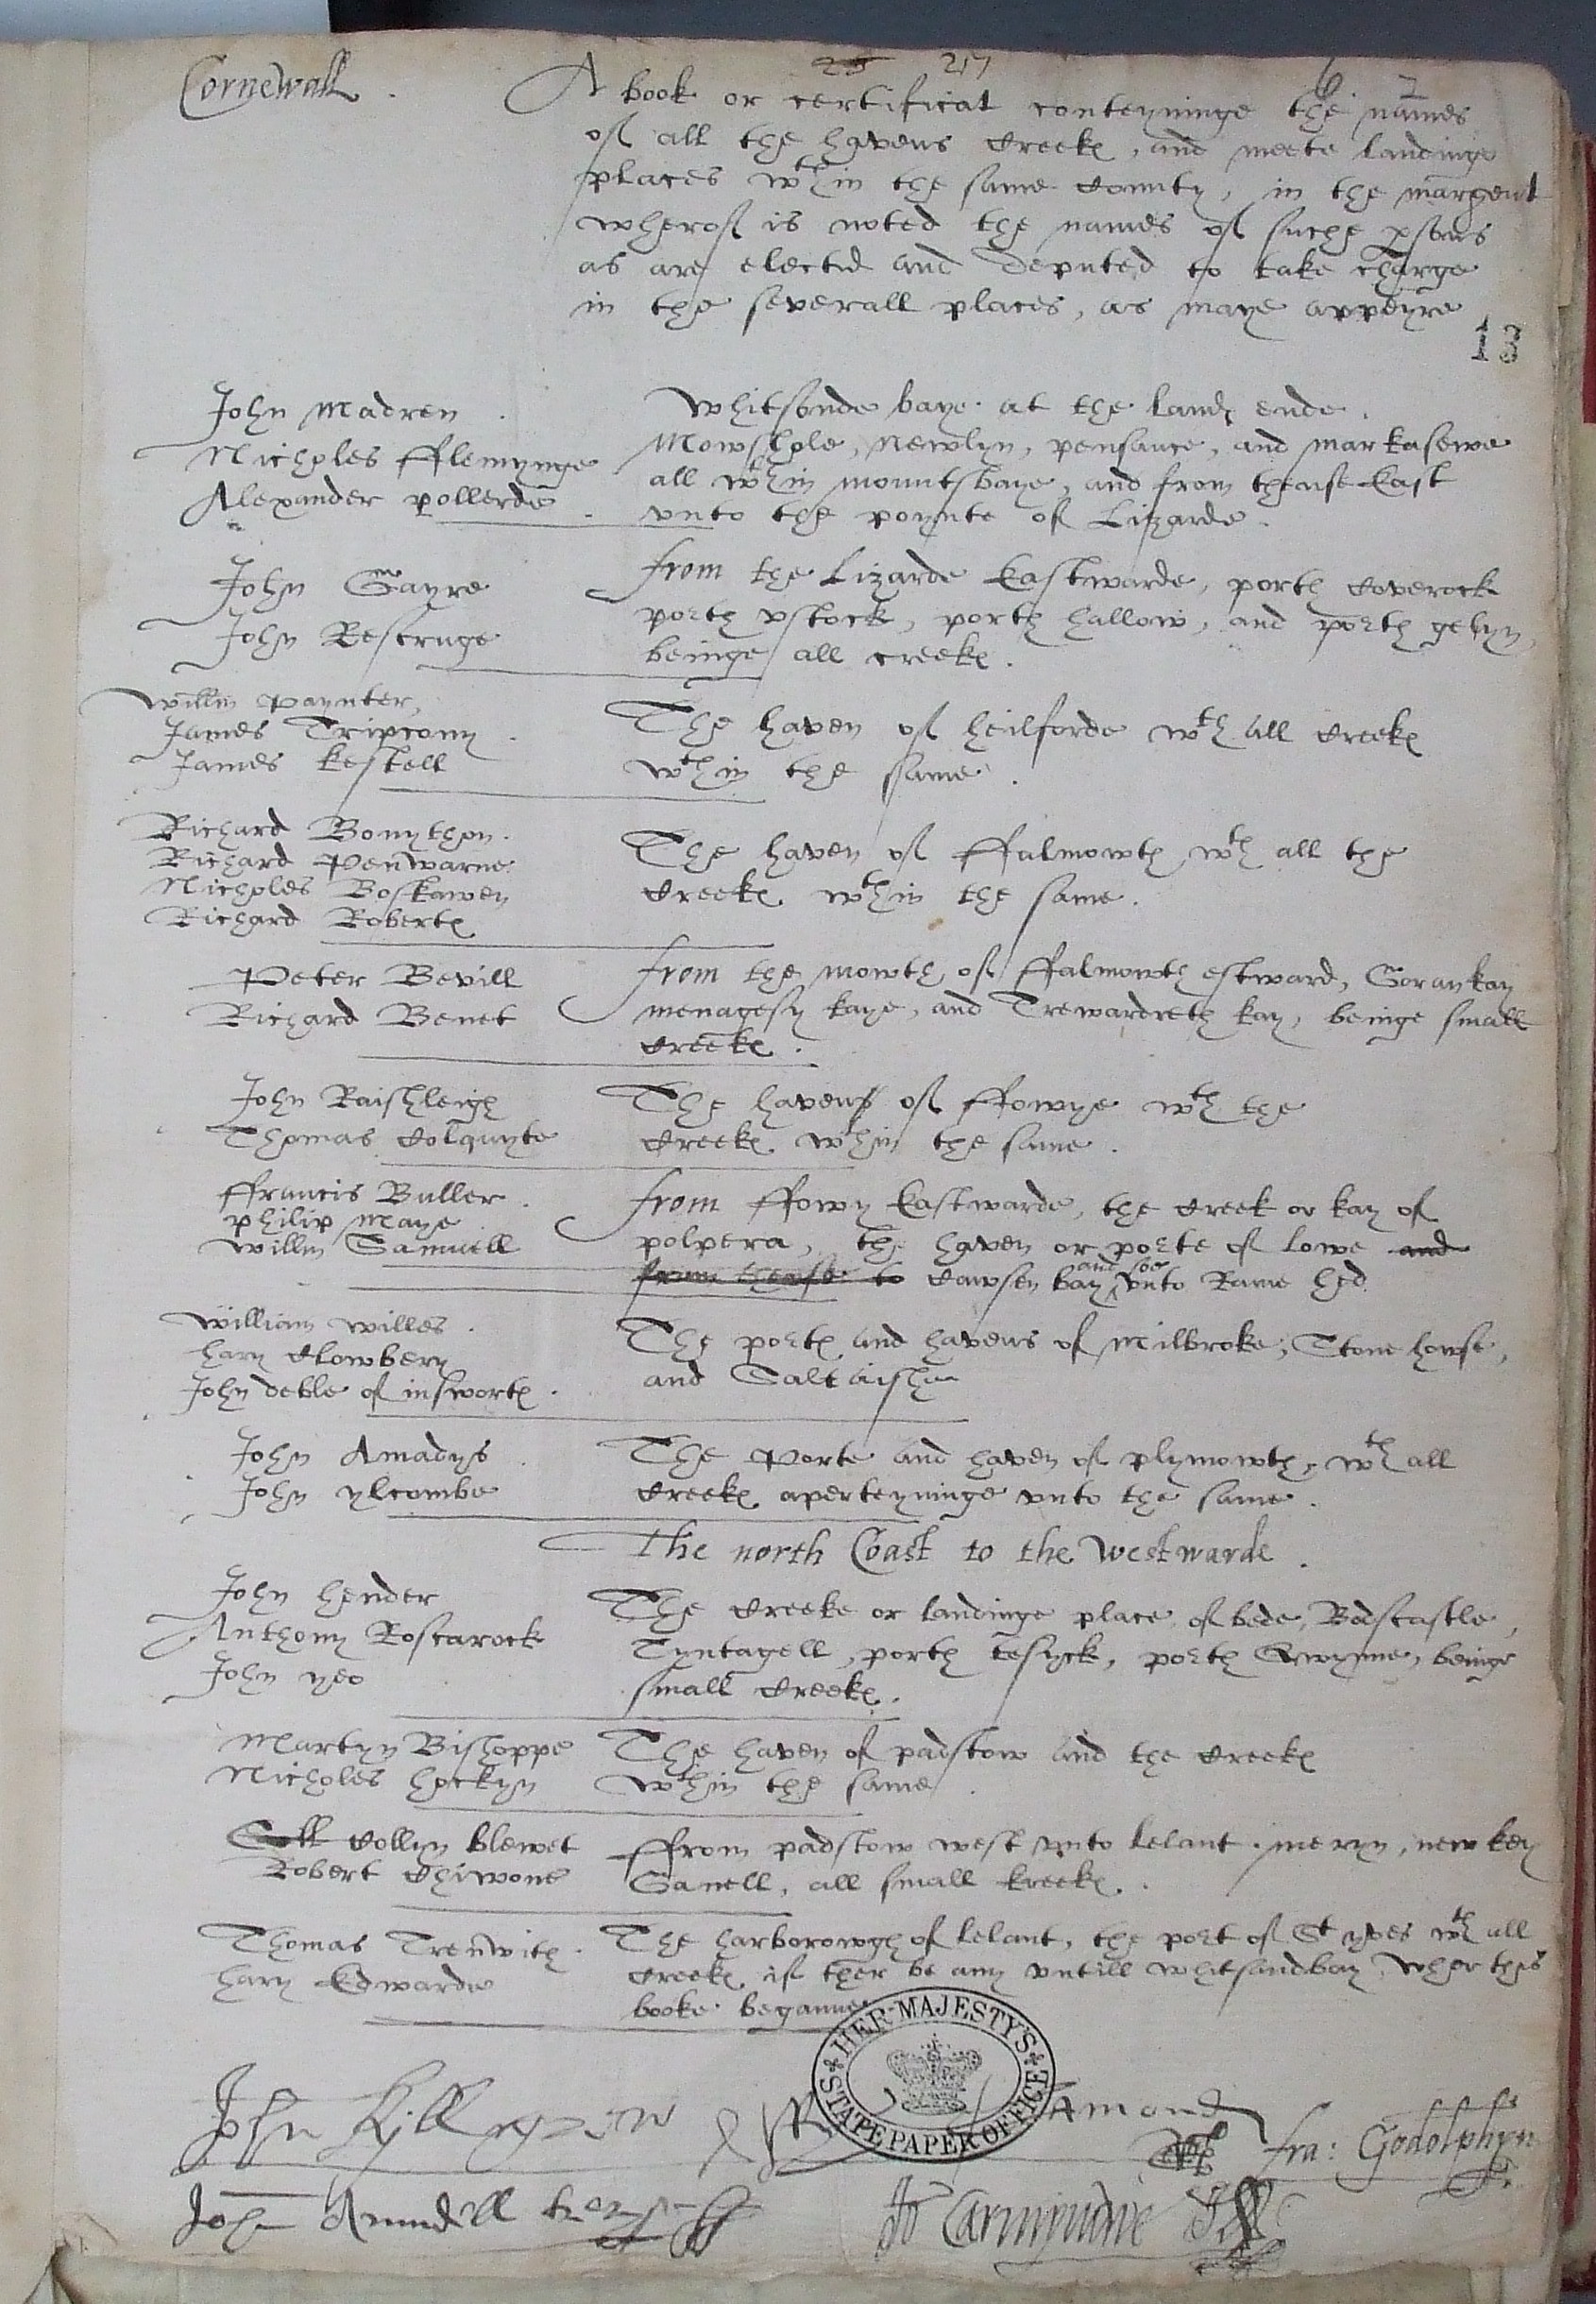 Cornewall .
25 217
6 2
A book or certificat conteyninge the names
of all the havens Creekes, and meete landinge
places wthin the same County, in the margent
wherof is noted the names of suche psons
as are electid and deputed to take charge
in the severall places, as maye appeyre
13
John Madren .
Nicholes fflemynge
Alexander pollerde .
Whitsonde baye at the landes ende .
Mowshole, Newlyn, pensance, and markasewe
all wthin mountsbaye, and from thense East
vnto the poynte of Lizarde .
John Gayre
John Rescruge
from the Lizarde Eastwarde, porth Coverock
porth vstock, porth hallow, and porth gelyn,
beinge all creekes .
Willm Paynter,
James Tripcony .
James kestell
The haven of heilforde wth all Creekes
wthin the same .
Richard Bonython .
Richard Penwarne
Nicholes Boskawen
Richard Robertes
The haven of ffalmowth wth all the
Creekes wthin the same .
Peter Bevill
Richard Benet
from the mowth of ffalmowth estward, Gorankay
menagesy kaye, and Trewardreth kay, beinge small
Creekes .
John Raishleigh
Thomas Colquyte
The havens of ffowye wth the
Creekes wthin the same .
ffrancis Buller .
philip Maye .
Willm Samuell
from ffowy Eastwarde, the Creek or kay of
polpera, the haven or porte of lowe and
from thense to Cawsen bay and soe vnto Rame hed
William Willes .
hary Clowbery
John deble of insworth .
The portes and havens of Milbroke, Stone howse,
and Salt aishe
John Amadys .
John ylcombe
The Porte and haven of plymowth, wth all
Creekes aperteyninge vnto the same .
The north Coast to the Westwarde .
John hender
Anthony Roscarock
John yeo
The Creeke or landinge place of bede, Bodscastle,
Tyntagell, porth Tesyck, porth Qwynne, beinge
small Creekes .
Martyn Bishoppe
Nicholes hockyn
The haven of padstow and the Creekes
wthin the same .
Collyn blewet
Robert Chiwone
ffrom padstow west vnto lelant . meryn, new key
Ganell, all small kreekes .
Thomas Trenwith .
hary Edwardes
The harborowgh of lelant, the port of St yves wth all
Creekes if ther be any vntill whitsandbay wher this
booke beganne
HER MAJESTY'S
STATE PAPER OFFICE
John Kyllygrew
Tamond
fra: Godolphyn
John Arundell
Jo Carminowe